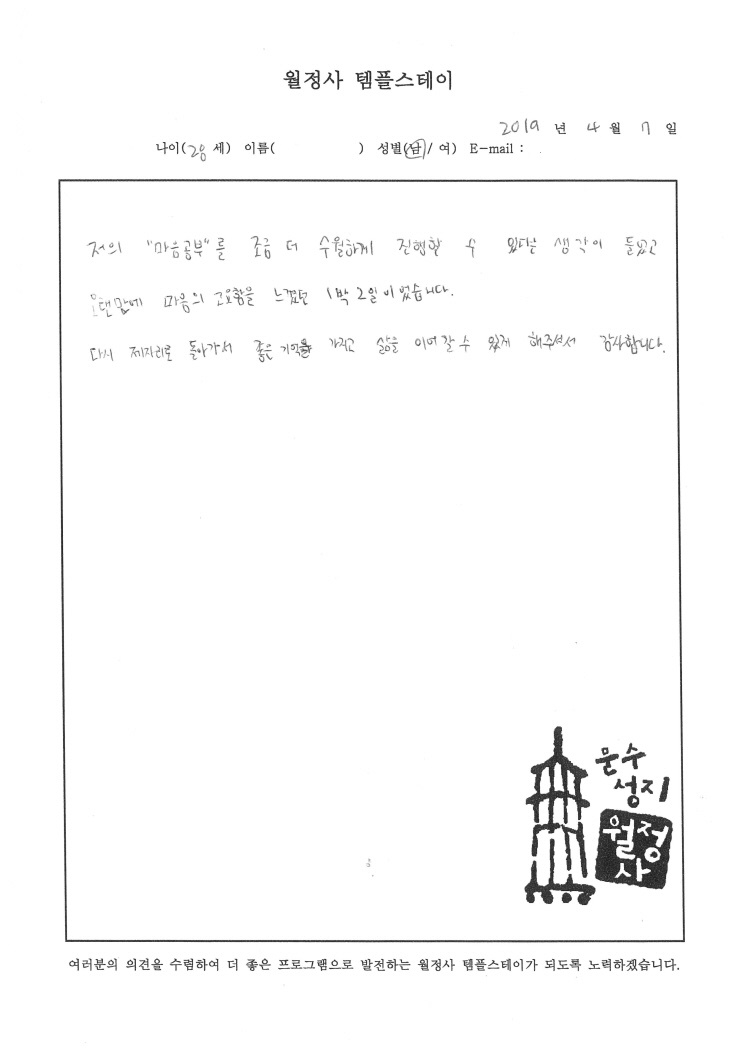 월정사 템플스테이
2019 년 4 월 17 일
나이(28 세) 이름( ) 성별(남/ 여) E-mail :
저의 "마음공부"를 조금 더 수월하게 진행할 수 있다는 생각이 들었고
오랜만에 마음의 고요함을 느꼈던 1박 2일이었습니다.
다시 제자리로 돌아가서 좋은 기억을 가지고 삶을 이어갈 수 있게 해주셔서 감사합니다.
문수
성지
월정
사
여러분의 의견을 수렴하여 더 좋은 프로그램으로 발전하는 월정사 템플스테이가 되도록 노력하겠습니다.